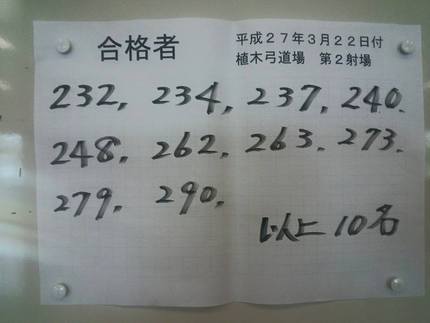 合格者
平成27年3月22日付
植木弓道場　第2射場
232, 234, 237, 240.
248, 262, 263, 273.
279, 290,
以上10名